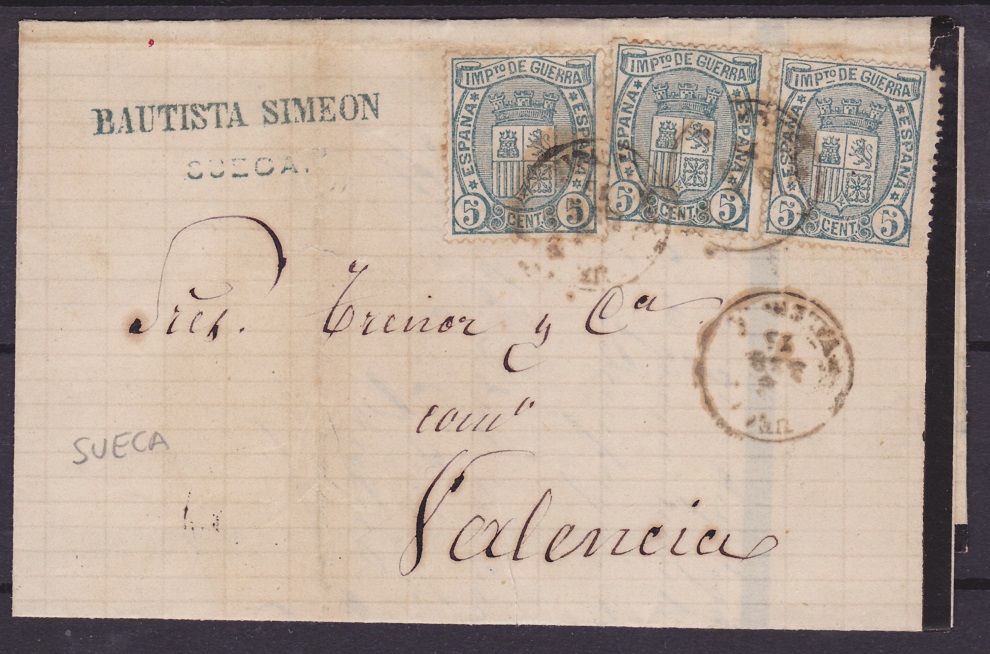 BAUTISTA SIMEON
SUECA.
IMPTO DE GUERRA
ESPAÑA ESPAÑA
5 CENT. 5
IMPTO DE GUERRA
ESPAÑA ESPAÑA
5 CENT. 5
IMPTO DE GUERRA
ESPAÑA ESPAÑA
5 CENT. 5
Sres. Trenor y Ca
como
Valencia
SUECA